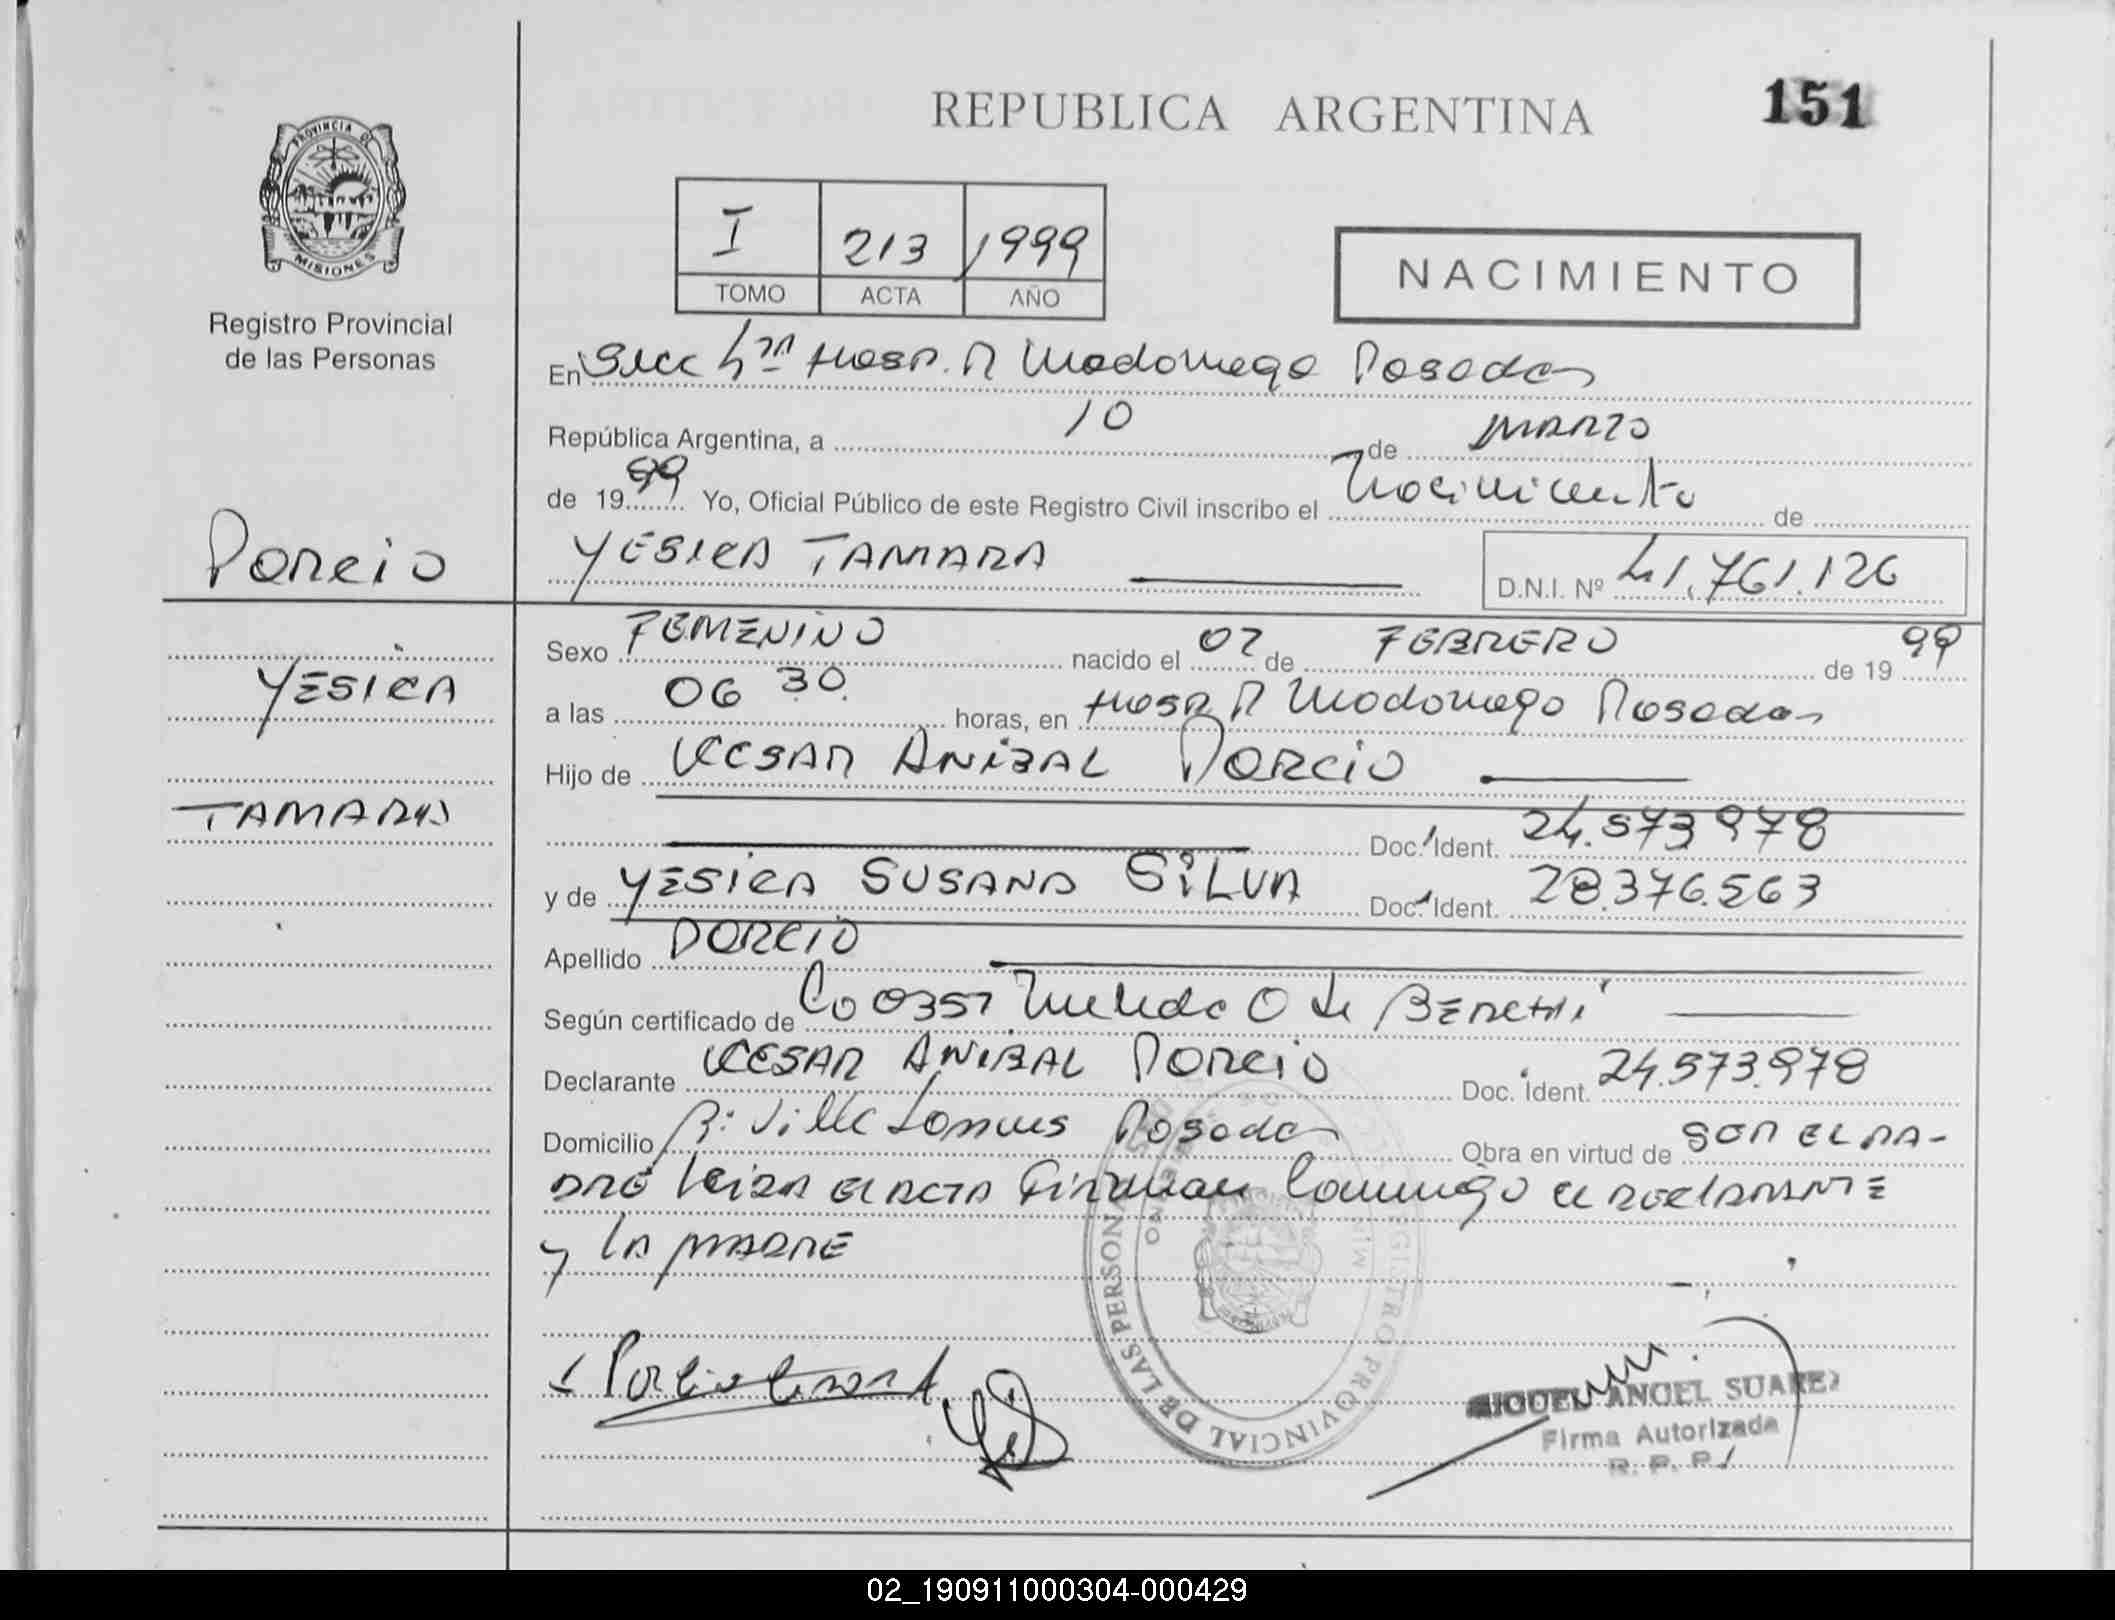 REPUBLICA ARGENTINA
151
PROVINCIA DE
MISIONES
Registro Provincial
de las Personas
I 213 1999
TOMO ACTA AÑO
NACIMIENTO
En Secc 4ta Hosp. R Madariaga Posadas
República Argentina, a 10 de MARZO
de 1999 Yo, Oficial Público de este Registro Civil inscribo el Nacimiento de
Porcio
YESICA TAMARA
D.N.I. Nº 41.761.126
YESICA
TAMARA
Sexo FEMENINO nacido el 02 de FEBRERO de 1999
a las 06 30 horas, en Hosp R Madariaga Posadas
Hijo de CESAR ANIBAL PORCIO
Doc. Ident. 24.573.978
y de YESICA SUSANA SILVA Doc. Ident. 28.376.563
Apellido PORCIO
Según certificado de O de
Declarante CESAR ANIBAL PORCIO Doc. Ident. 24.573.978
Domicilio Posadas Obra en virtud de SER EL PA-
DRE Leida el ACTA Firman Conmigo el DECLARANTE
y la MADRE
REGISTRO PROVINCIAL DE LAS PERSONAS
MIGUEL ANGEL SUAREZ
Firma Autorizada
R. P. P.
02_190911000304-000429